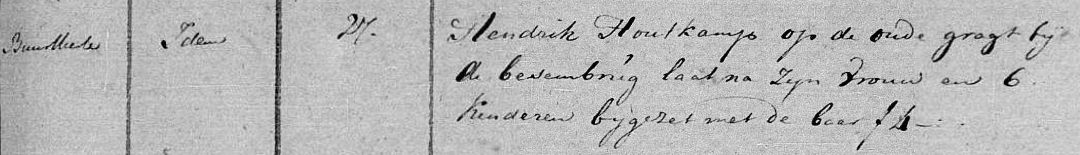 Buurkerk Idem 27. Hendrik Houtkamp op de oude gragt bij
de besembrug laat na zyn vrouw en 6
kinderen bygezet met de baar f 4 —